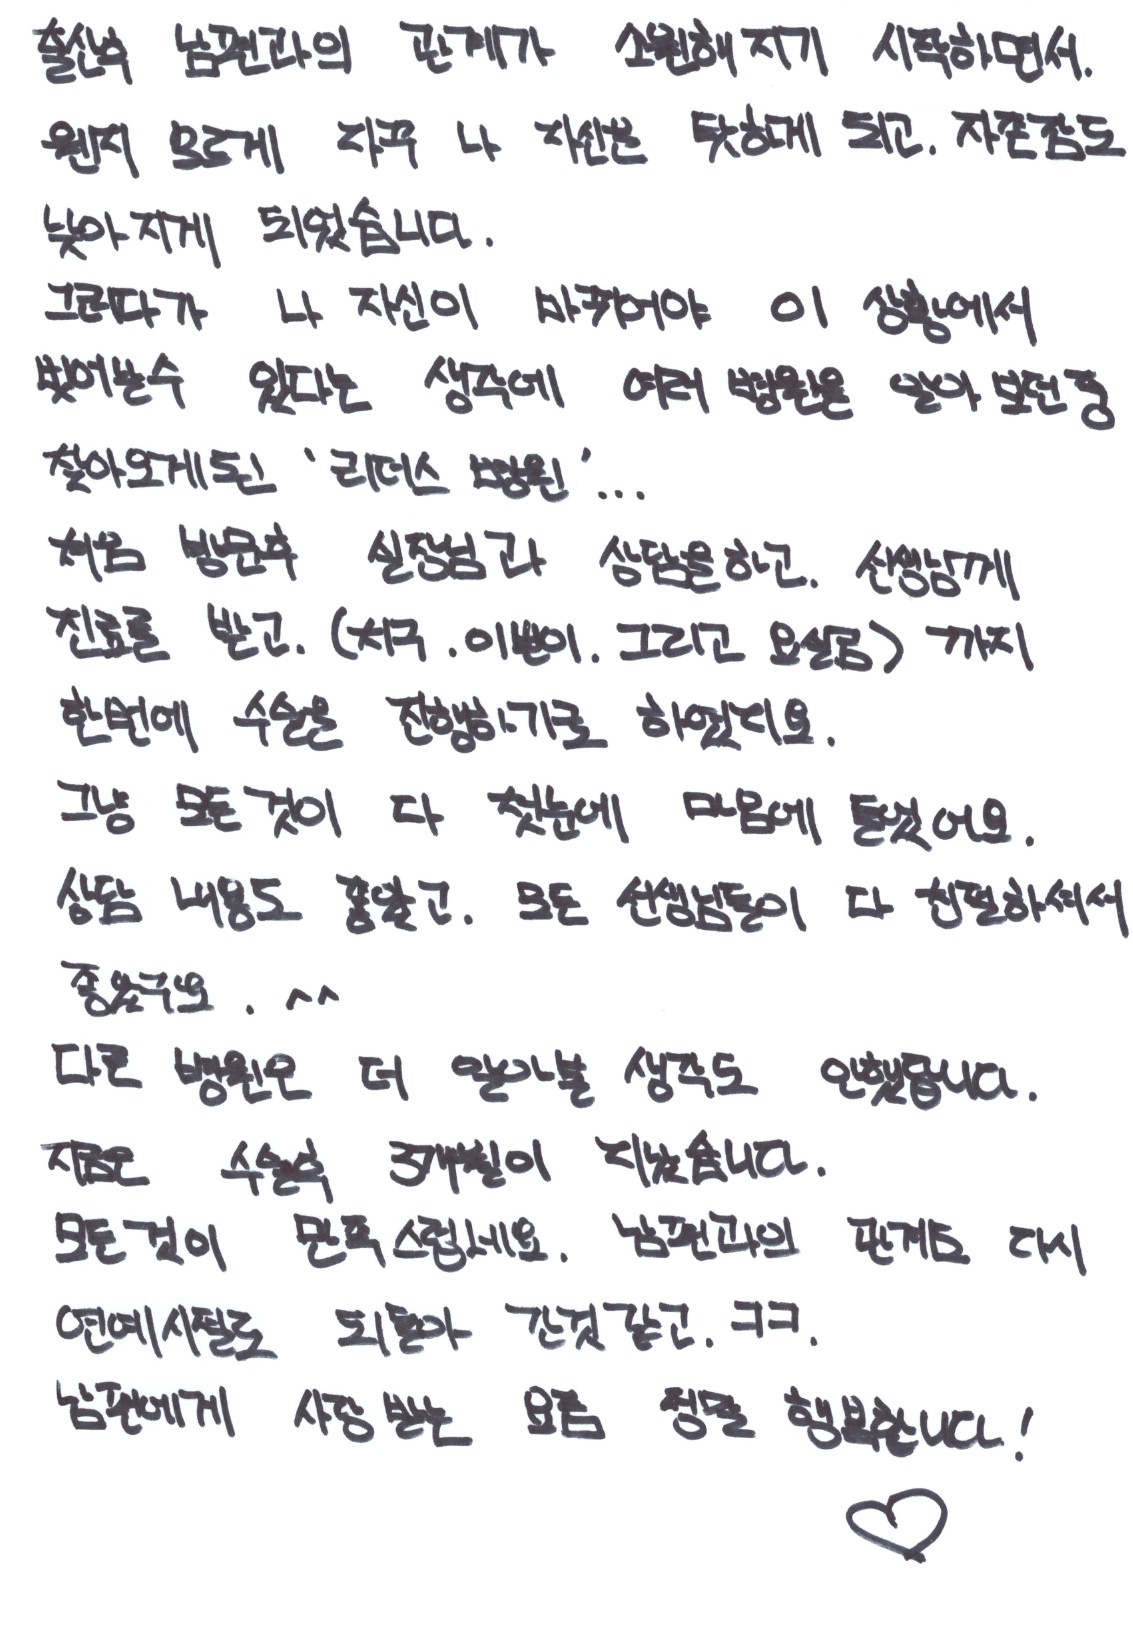 출산후 남편과의 관계가 소원해 지기 시작하면서.
웬지 모르게 자꾸 나 자신을 탓하게 되고. 자존감도
낮아지게 되었습니다.
그러다가 나 자신이 바뀌어야 이 상황에서
벗어날수 있다는 생각에 여러 병원을 알아 보던중
찾아오게된 '리더스 병원'...
처음 방문후 실장님과 상담을하고. 선생님께
진료를 받고. (치국.이쁜이.그리고 요실금) 까지
한번에 수술을 진행하기로 하였지요.
그냥 모든것이 다 첫눈에 마음에 들었어요.
상담 내용도 좋았고. 모든 선생님들이 다 친절하셔서
좋았구요. ^^
다른 병원은 더 알아볼 생각도 안했답니다.
지금은 수술후 3개월이 지났습니다.
모든것이 만족스럽네요. 남편과의 관계도 다시
연예시절로 되돌아 간것같고. ㅋㅋ.
남편에게 사랑받는 요즘 정말 행복합니다!